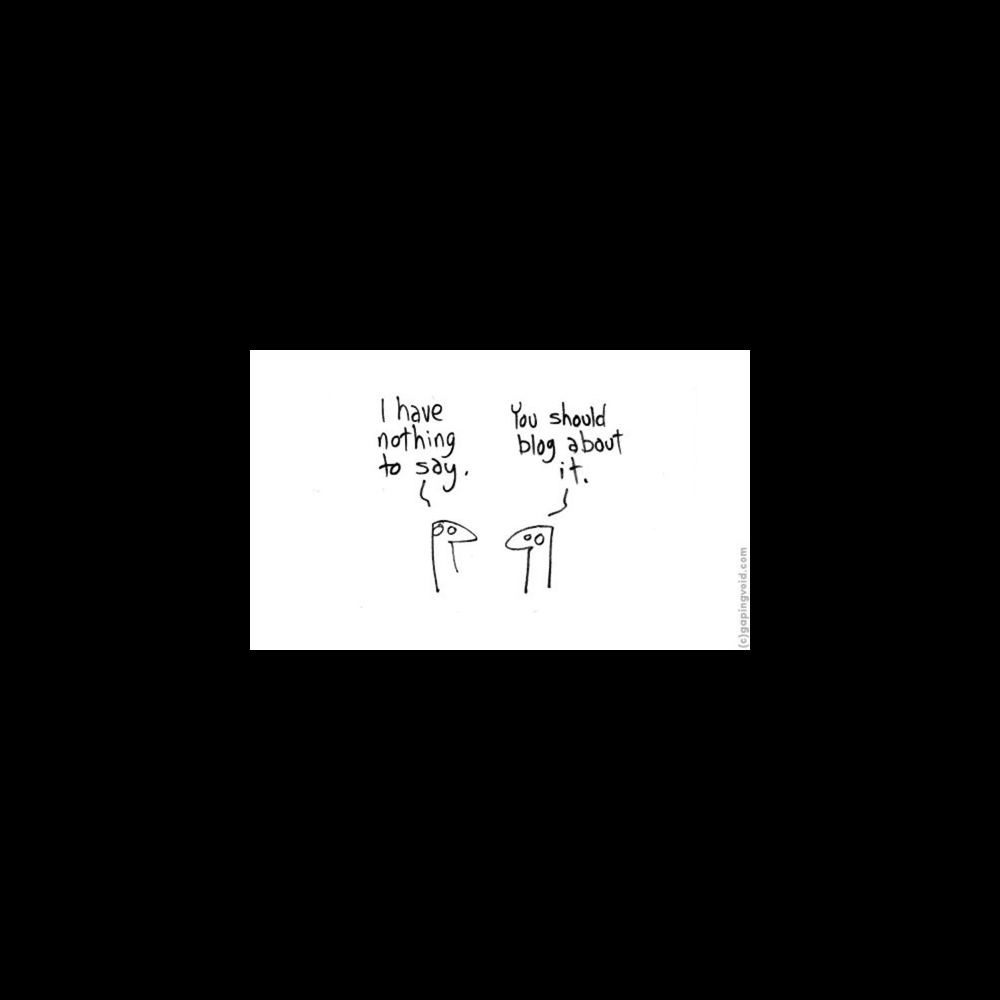 I have
nothing
to say.
You should
blog about
it.
(c)gapingvoid.com